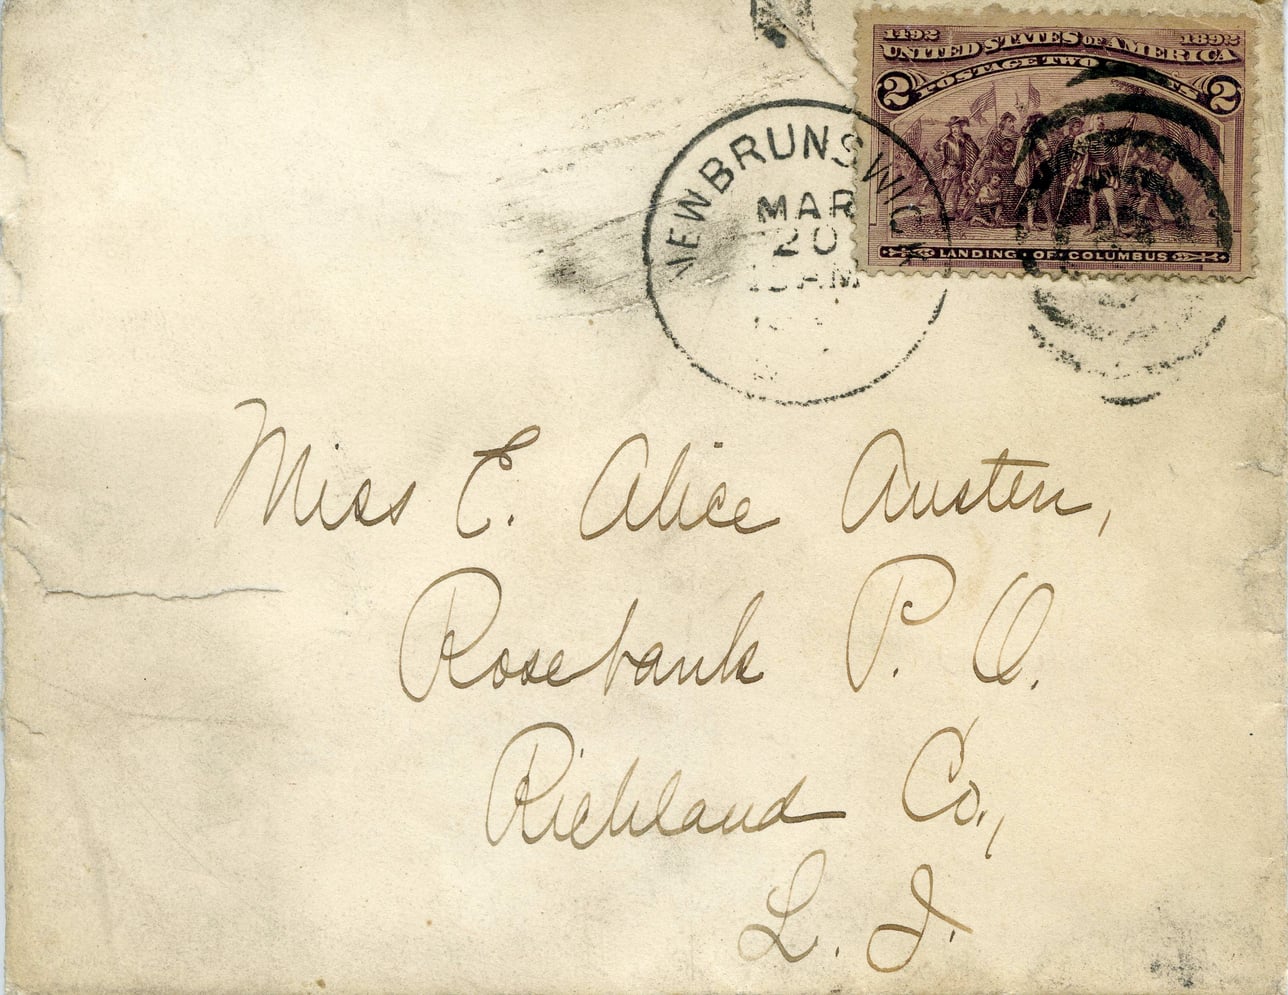 1492 1892
UNITED STATES OF AMERICA
POSTAGE TWO
2 2
LANDING OF COLUMBUS
NEW BRUNSWICK
MAR
20
AM
Miss E. Alice Austen,
Rosebank P. O.
Richland Co.,
L. I.